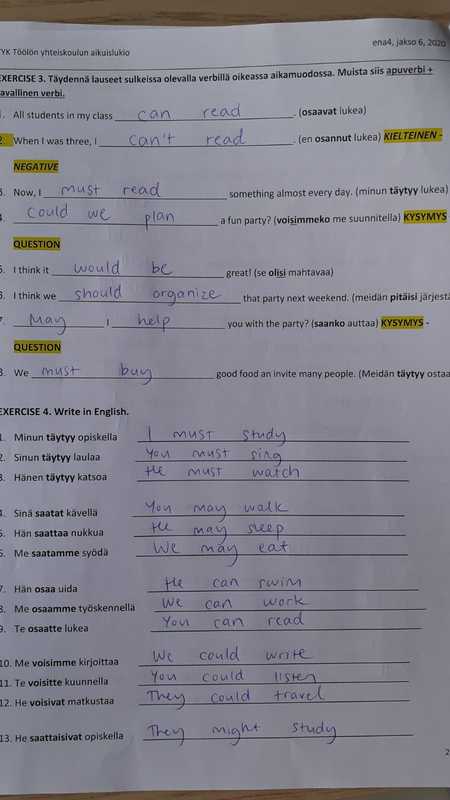 ena4, jakso 6, 2020
YK Töölön yhteiskoulun aikuislukio
EXERCISE 3. Täydennä lauseet sulkeissa olevalla verbillä oikeassa aikamuodossa. Muista siis apuverbi +
avallinen verbi.
1. All students in my class can read . (osaavat lukea)
2. When I was three, I can't read . (en osannut lukea) KIELTEINEN -
NEGATIVE
3. Now, I must read something almost every day. (minun täytyy lukea)
4. Could we plan a fun party? (voisimmeko me suunnitella) KYSYMYS -
QUESTION
5. I think it would be great! (se olisi mahtavaa)
6. I think we should organize that party next weekend. (meidän pitäisi järjestä
7. May I help you with the party? (saanko auttaa) KYSYMYS -
QUESTION
8. We must buy good food an invite many people. (Meidän täytyy ostaa
EXERCISE 4. Write in English.
1. Minun täytyy opiskella I must study
2. Sinun täytyy laulaa You must sing
3. Hänen täytyy katsoa He must watch
4. Sinä saatat kävellä You may walk
5. Hän saattaa nukkua He may sleep
6. Me saatamme syödä We may eat
7. Hän osaa uida He can swim
8. Me osaamme työskennellä We can work
9. Te osaatte lukea You can read
10. Me voisimme kirjoittaa We could write
11. Te voisitte kuunnella You could listen
12. He voisivat matkustaa They could travel
13. He saattaisivat opiskella They might study
2